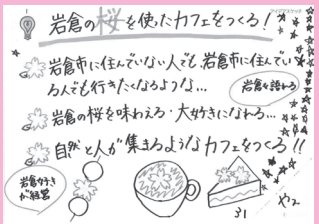 岩倉の桜を使ったカフェをつくる!
岩倉市に住んでいない人でも、岩倉市に住んでい
る人でも行きたくなるような…
岩倉を語れる
岩倉の桜を味わえる・大好きになれる…
自然と人が集まるようなカフェをつくる!!
岩倉好き
が経営